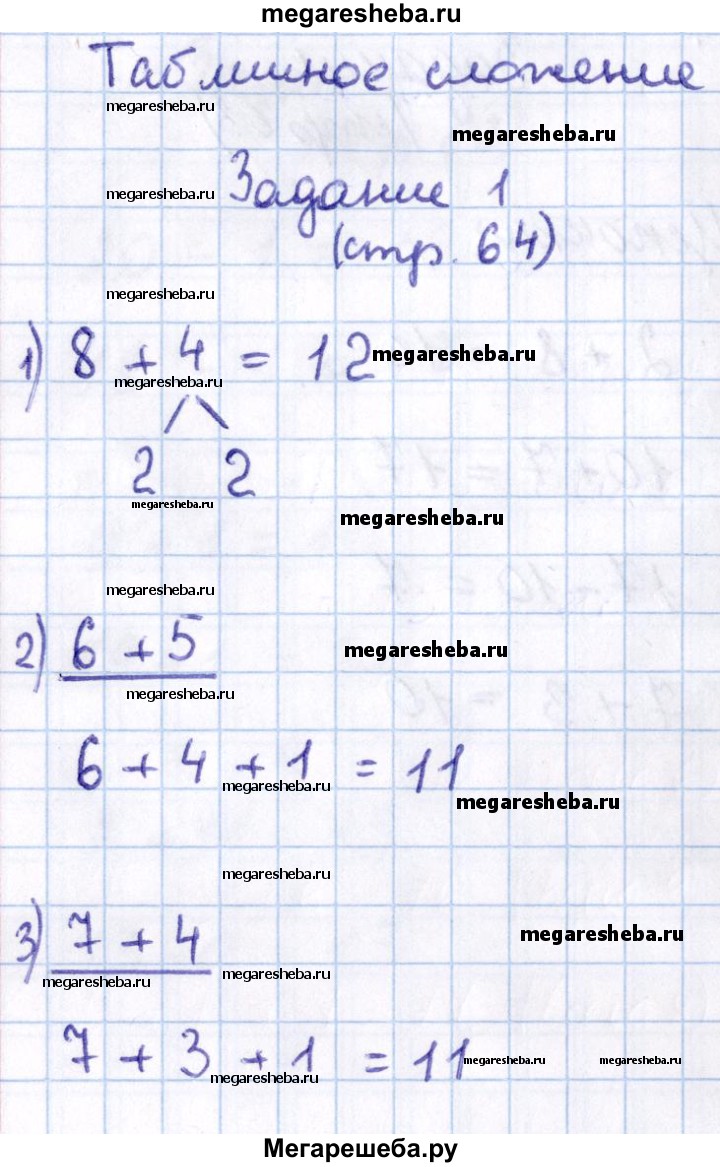 megaresheba.ru
Табличное сложение
megaresheba.ru
megaresheba.ru
Задание 1
megaresheba.ru
(стр. 64)
megaresheba.ru
1) 8 + 4 = 12
megaresheba.ru
megaresheba.ru
2 2
megaresheba.ru
megaresheba.ru
megaresheba.ru
2) 6 + 5
megaresheba.ru
megaresheba.ru
6 + 4 + 1 = 11
megaresheba.ru
megaresheba.ru
megaresheba.ru
3) 7 + 4
megaresheba.ru
megaresheba.ru
megaresheba.ru
7 + 3 + 1 = 11
megaresheba.ru
megaresheba.ru
megaresheba.ru
Мегарешеба.ру